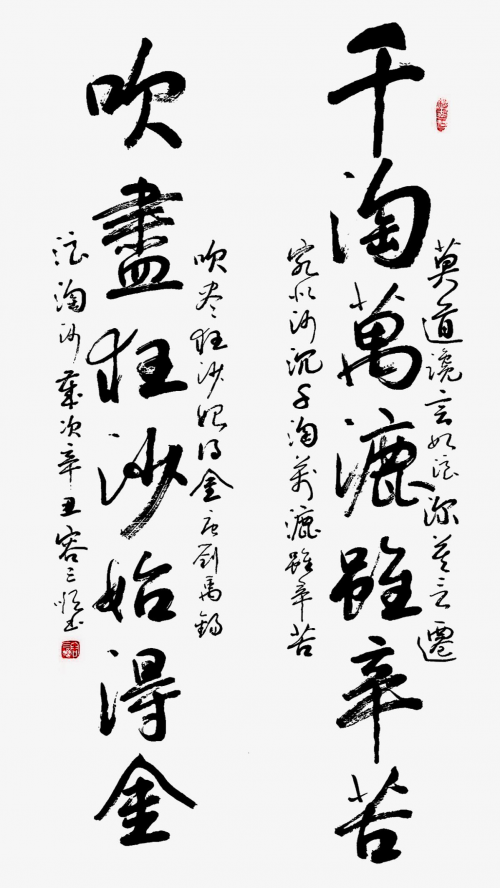 莫道讒言如浪深莫言遷
千淘萬漉雖辛苦
客似沙沉千淘萬漉雖辛苦
吹尽狂沙始得金唐劉禹錫
吹盡狂沙始得金
浪淘沙歲次辛丑容三书